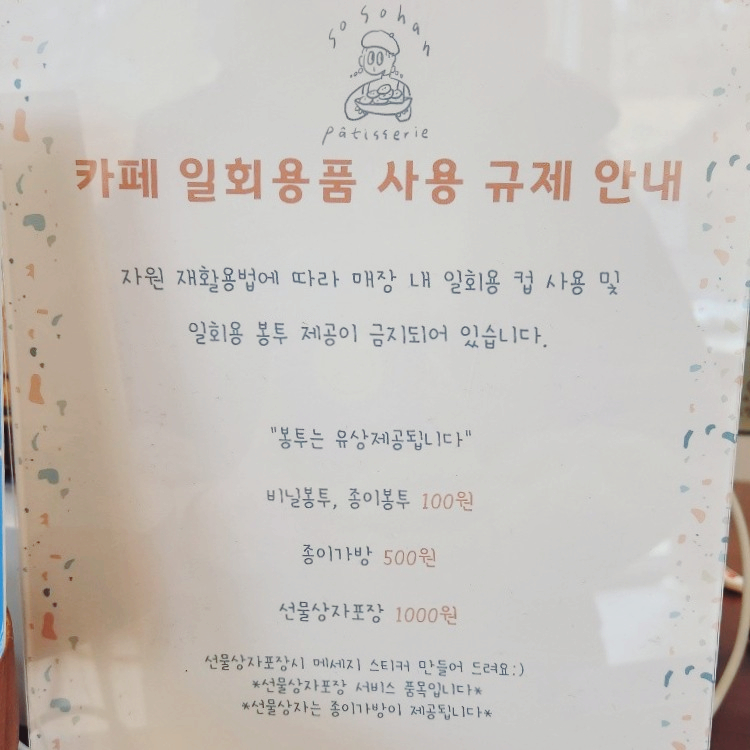 sosohan
pâtisserie
카페 일회용품 사용 규제 안내
자원 재활용법에 따라 매장 내 일회용 컵 사용 및
일회용 봉투 제공이 금지되어 있습니다.
"봉투는 유상제공됩니다"
비닐봉투, 종이봉투 100원
종이가방 500원
선물상자포장 1000원
선물상자포장시 메세지 스티커 만들어 드려요:)
*선물상자포장 서비스 품목입니다*
*선물상자는 종이가방이 제공됩니다*